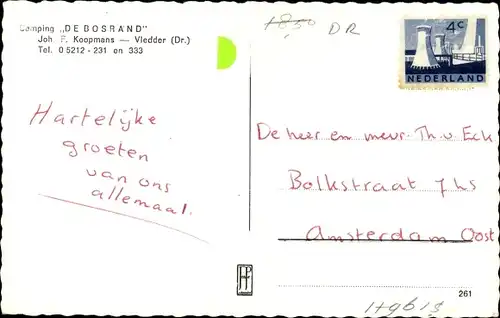 Camping „DE BOSRAND"
Joh. F. Koopmans — Vledder (Dr.)
Tel. 0 5212 - 231 en 333
DR
4c
NEDERLAND
Hartelijke
groeten
van ons
allemaal.
De heer en mevr. Th. v. Eck
Balkstraat 7 hs
Amsterdam Oost
261